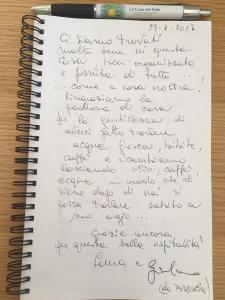 La Casa del Sole
23-7-2017
Ci siamo trovati
molto bene in questa
casa ben organizzata
e fornita di tutto...
... come a casa nostra!
Ringraziamo la
padrona di casa
per la gentilezza di
averci fatto trovare
acqua fresca, bibite,
caffè e ricambiamo
lasciando olio, caffè
acqua, in modo che chi
viene dopo di noi si
possa trovare subito a
suo agio...
Grazie ancora
per questa bella ospitalità!
e
(da Brescia)